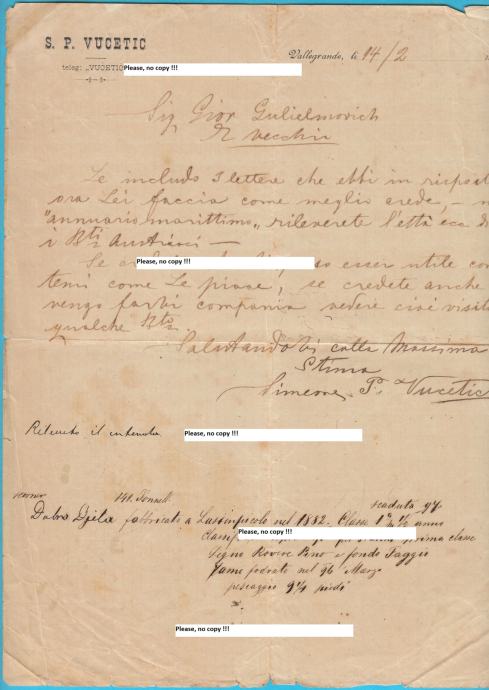 S. P. VUCETIC
teleg: „VUCETIC
Please, no copy !!!
Vallegrande, li 14/2
Sig Gior Gulielmovich
e vecchio
Le includo 3 lettere che ebbi in rispost
ora Lei faccia come meglio crede, —
"annuario marittimo„ rileverete l'età ecc d
i Bti Austriaci —
Se
Please, no copy !!!
esser utile co
temi come Le piace, se credete anche
vengo farvi compania vedere cioè visit
qualche Bto
Salutandovi colla Massima
Stima
Simeone P. Vucetic
Ritenuto il
Please, no copy !!!
scooner 141. Tonnell. scaduta 97.
Dobra Djela fabbricato a Lussinpiccolo nel 1882. Classe 1ª 1/2 anno
Please, no copy !!!
prima classe
Legno Rovere Pino e fondo Faggio
rame fodrato nel 96 Marzo
pescaggio 9½ piedi
Please, no copy !!!